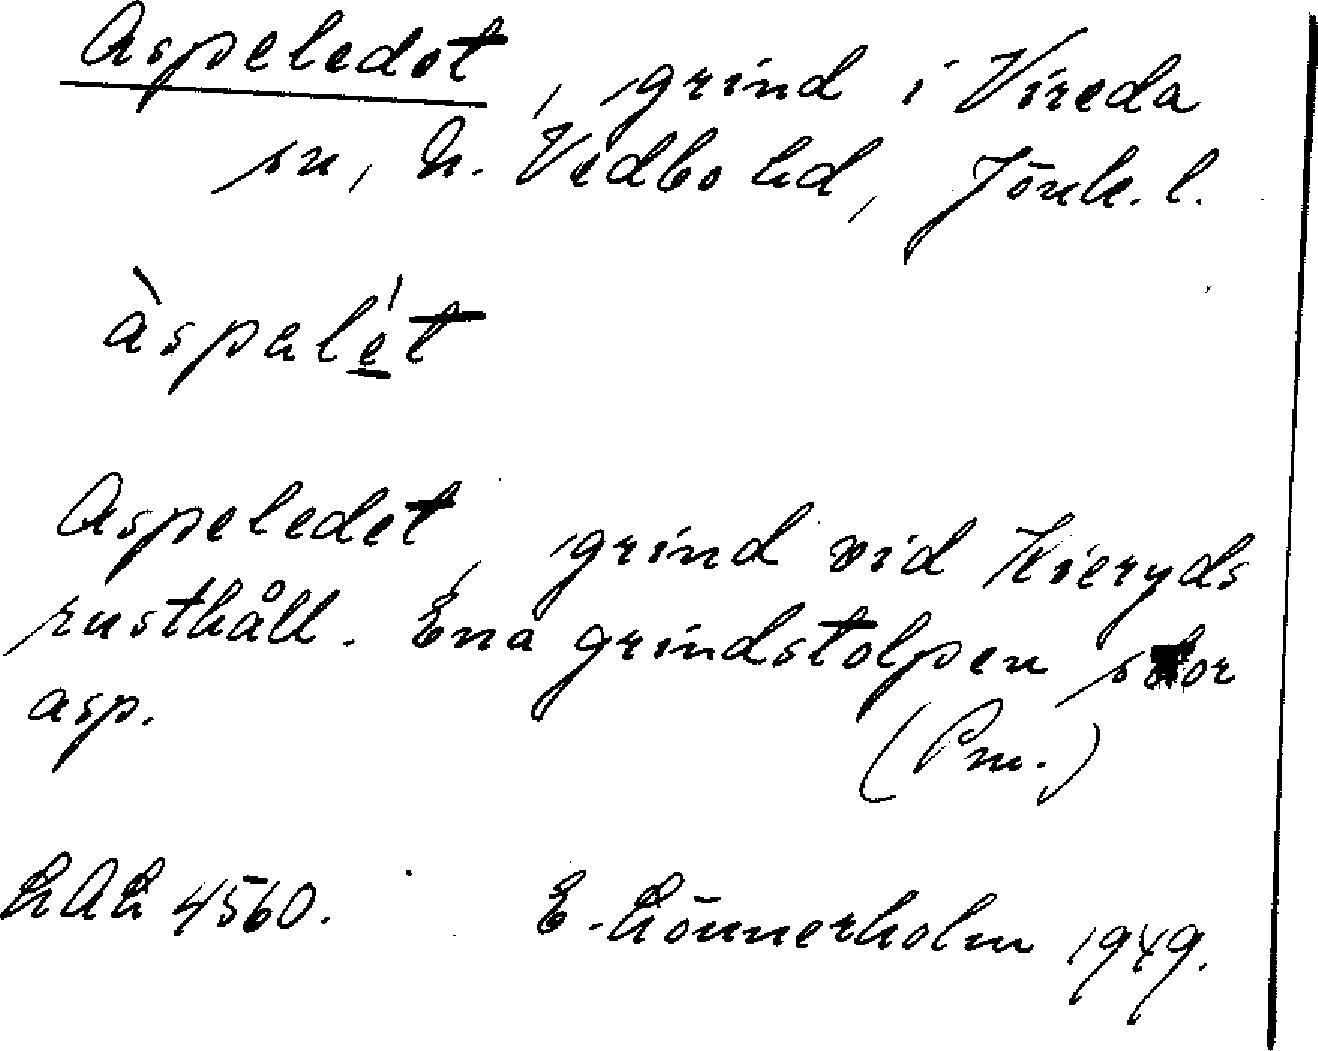 Aspeledet, grind i Vireda
sn, N. Vedbo hd, Jönk. l.
àspalét
Aspeledet, grind vid Hieryds
rusthåll. Ena grindstolpen stor
asp.
(Pm.)
LAL 4560. E. Lönnerholm 1949.